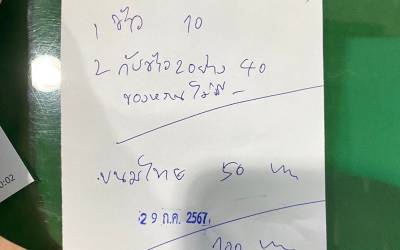 1 ข้าว 10
2 กับข้าว 2 อย่าง 40
ของหวานไม่มี -
ขนมไทย 50 บาท
29 ก.ค. 2567